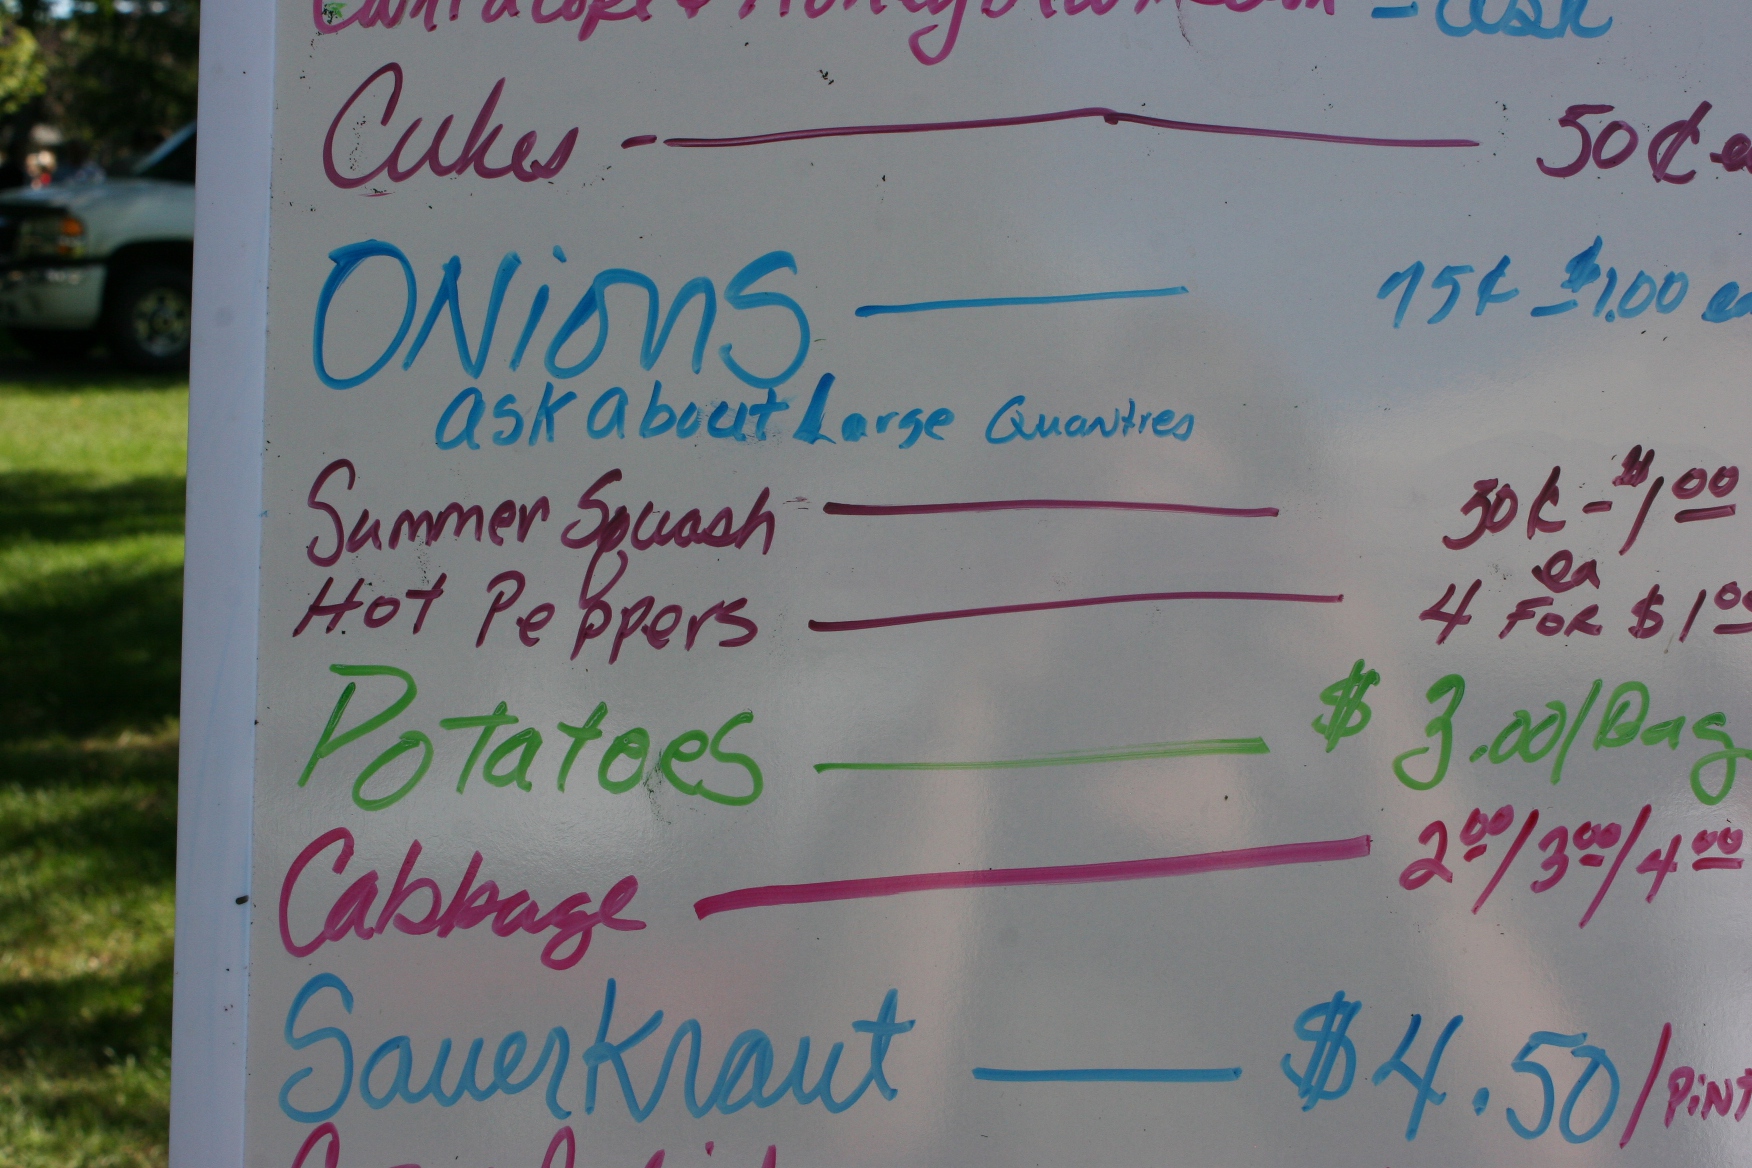 Cantalope & Honeydew melon - ask
Cukes - 50¢ ea
ONiONS 75¢ - $1.00 ea
ask about Large Quantres
Summer Squash 50¢ - $1.00 ea
Hot Peppers 4 FOR $1.00
Potatoes $3.00/Bag
Cabbage 2.00/3.00/4.00
Sauerkraut $4.50/PiNT